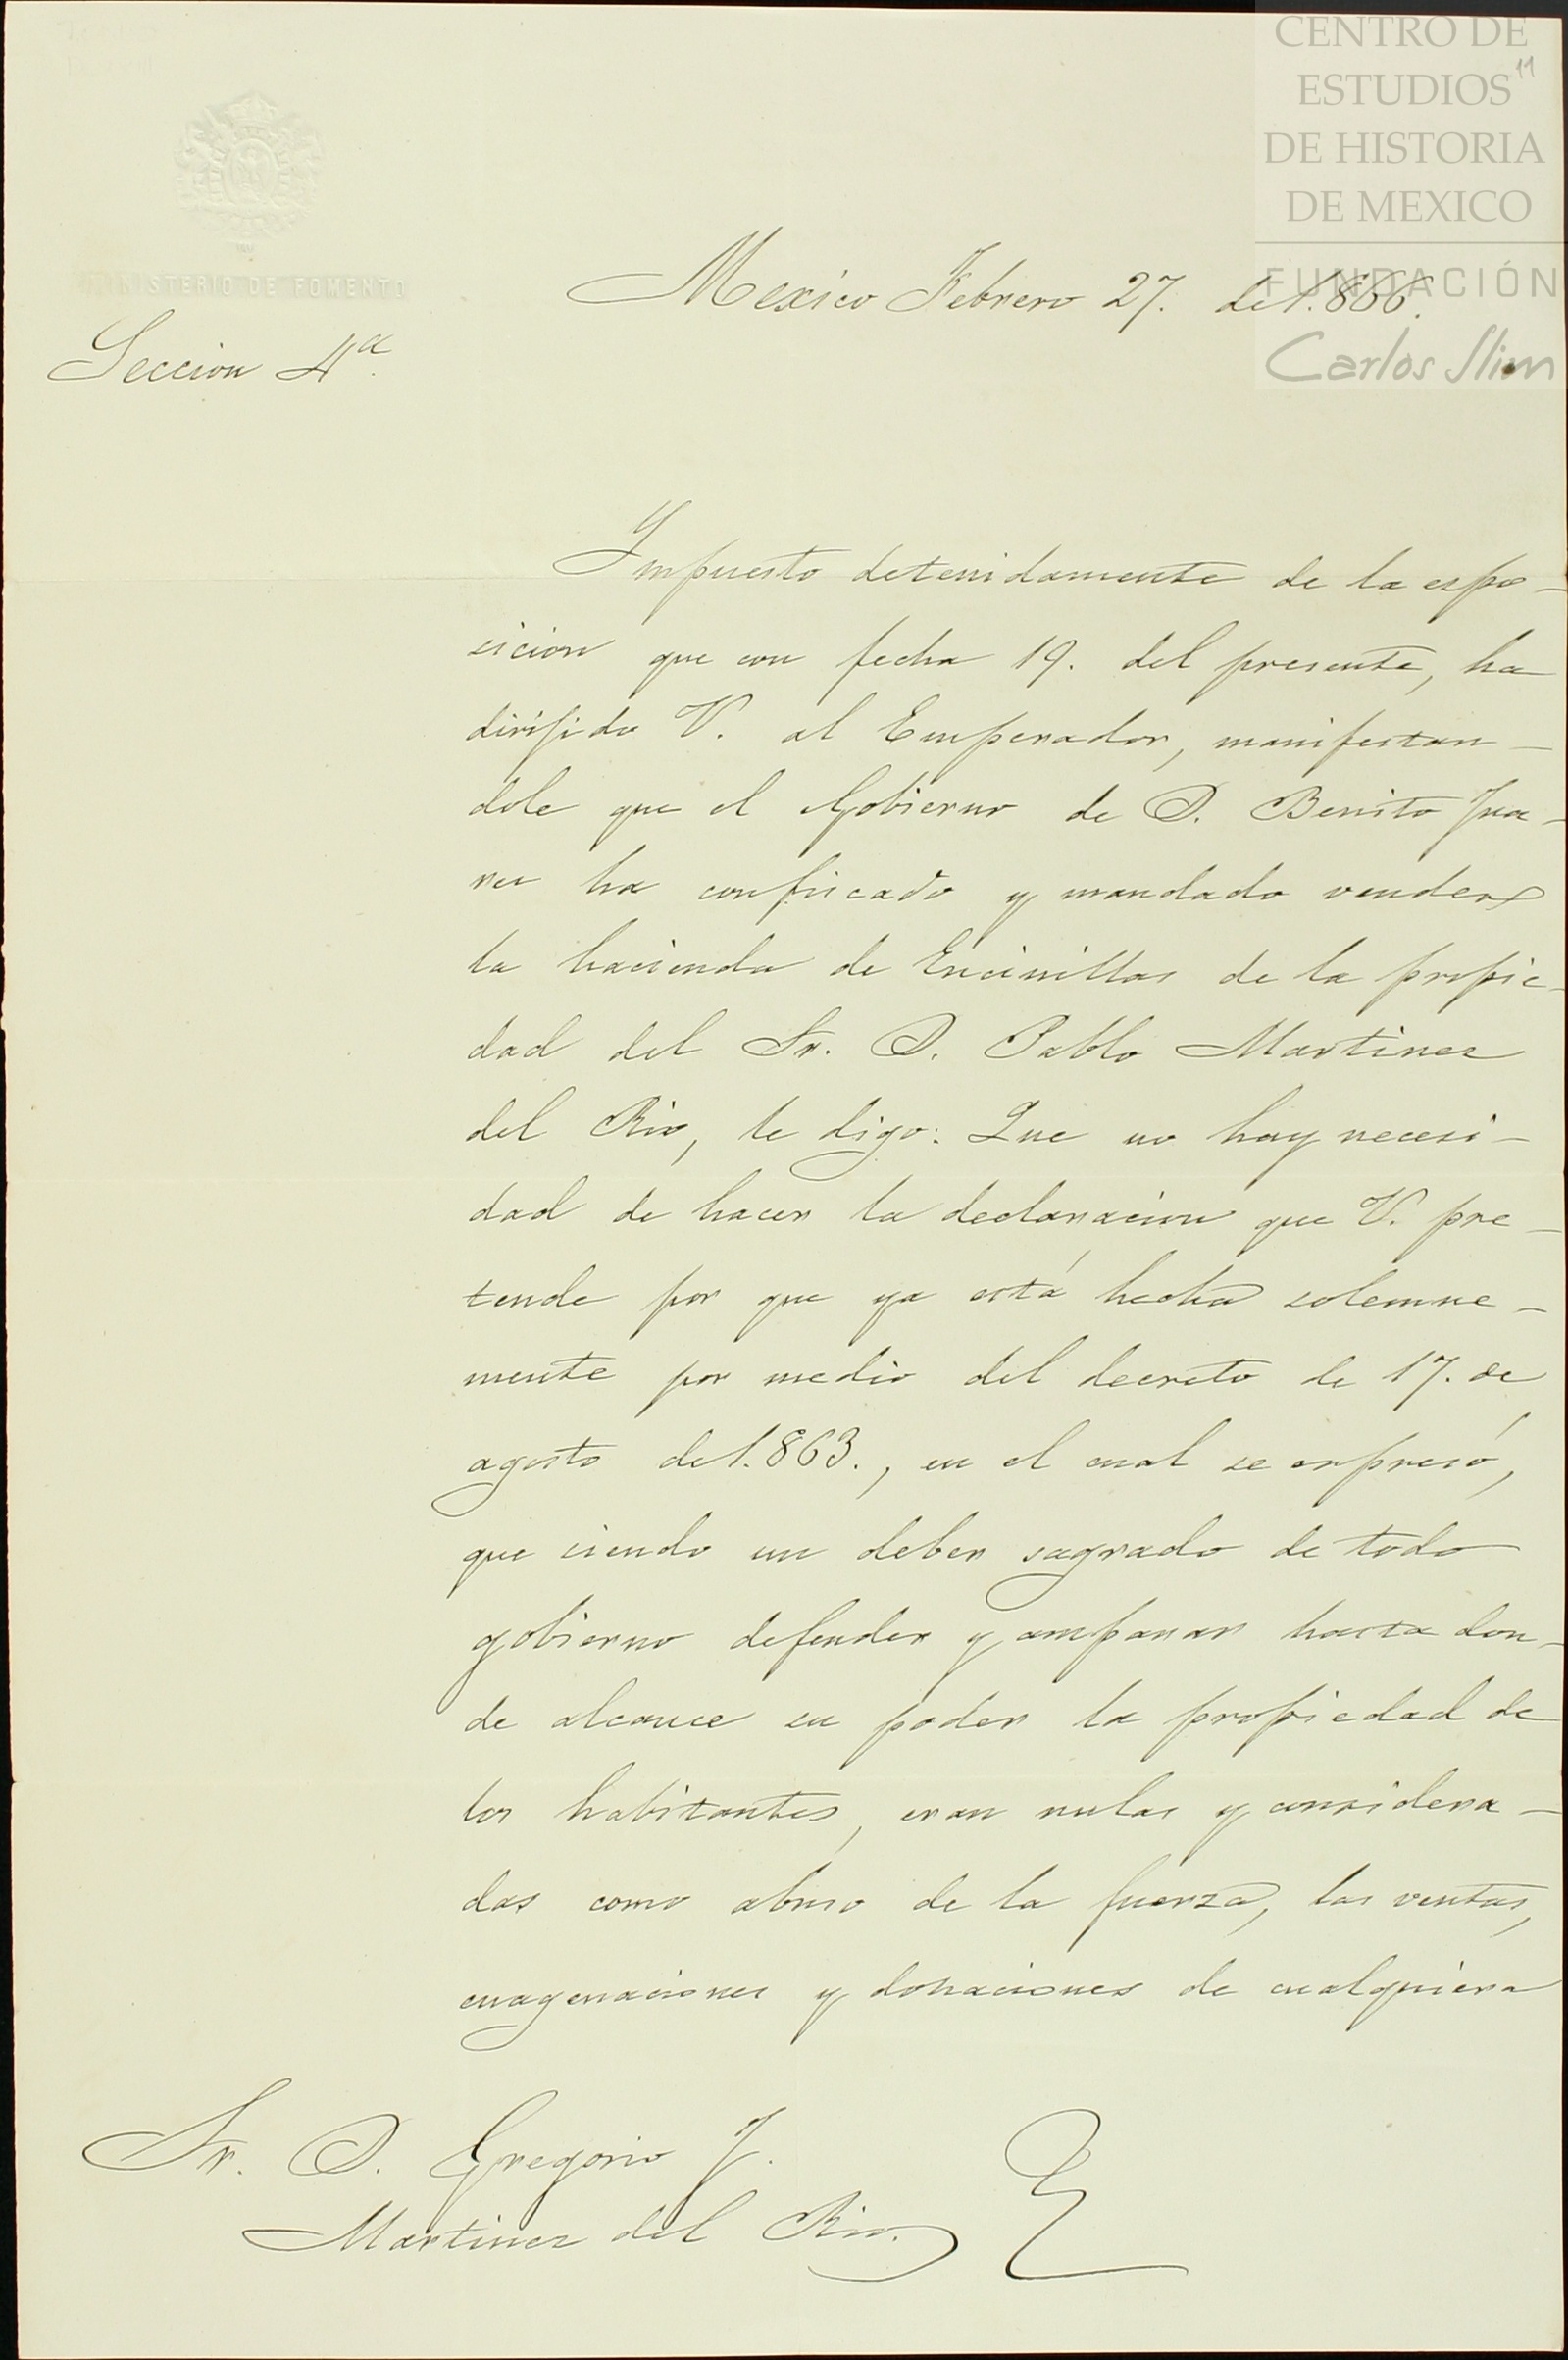 CENTRO DE
ESTUDIOS
DE HISTORIA
DE MEXICO
FUNDACIÓN
Carlos Slim
11
MINISTERIO DE FOMENTO
Mexico Febrero 27. de 1.866.
Seccion 4ª
Ympuesto detenidamente de la espo-
sicion que con fecha 19. del presente, ha
dirijido V. al Emperador, manifestan-
dole que el Gobierno de D. Benito Jua-
rez ha confiscado y mandado vender
la hacienda de Encinillas de la propie-
dad del Sr. D. Pablo Martinez
del Rio, le digo: Que no hay necesi-
dad de hacer la declaracion que V. pre-
tende por que ya está hecha solemne-
mente por medio del decreto de 17. de
agosto de 1.863., en el cual se expresó,
que siendo un deber sagrado de todo
gobierno defender y amparar hasta don-
de alcance su poder la propiedad de
los habitantes, eran nulas y considera-
das como abuso de la fuerza, las ventas,
enagenaciones y donaciones de cualquiera
Sr. D. Gregorio J.
Martinez del Rio.